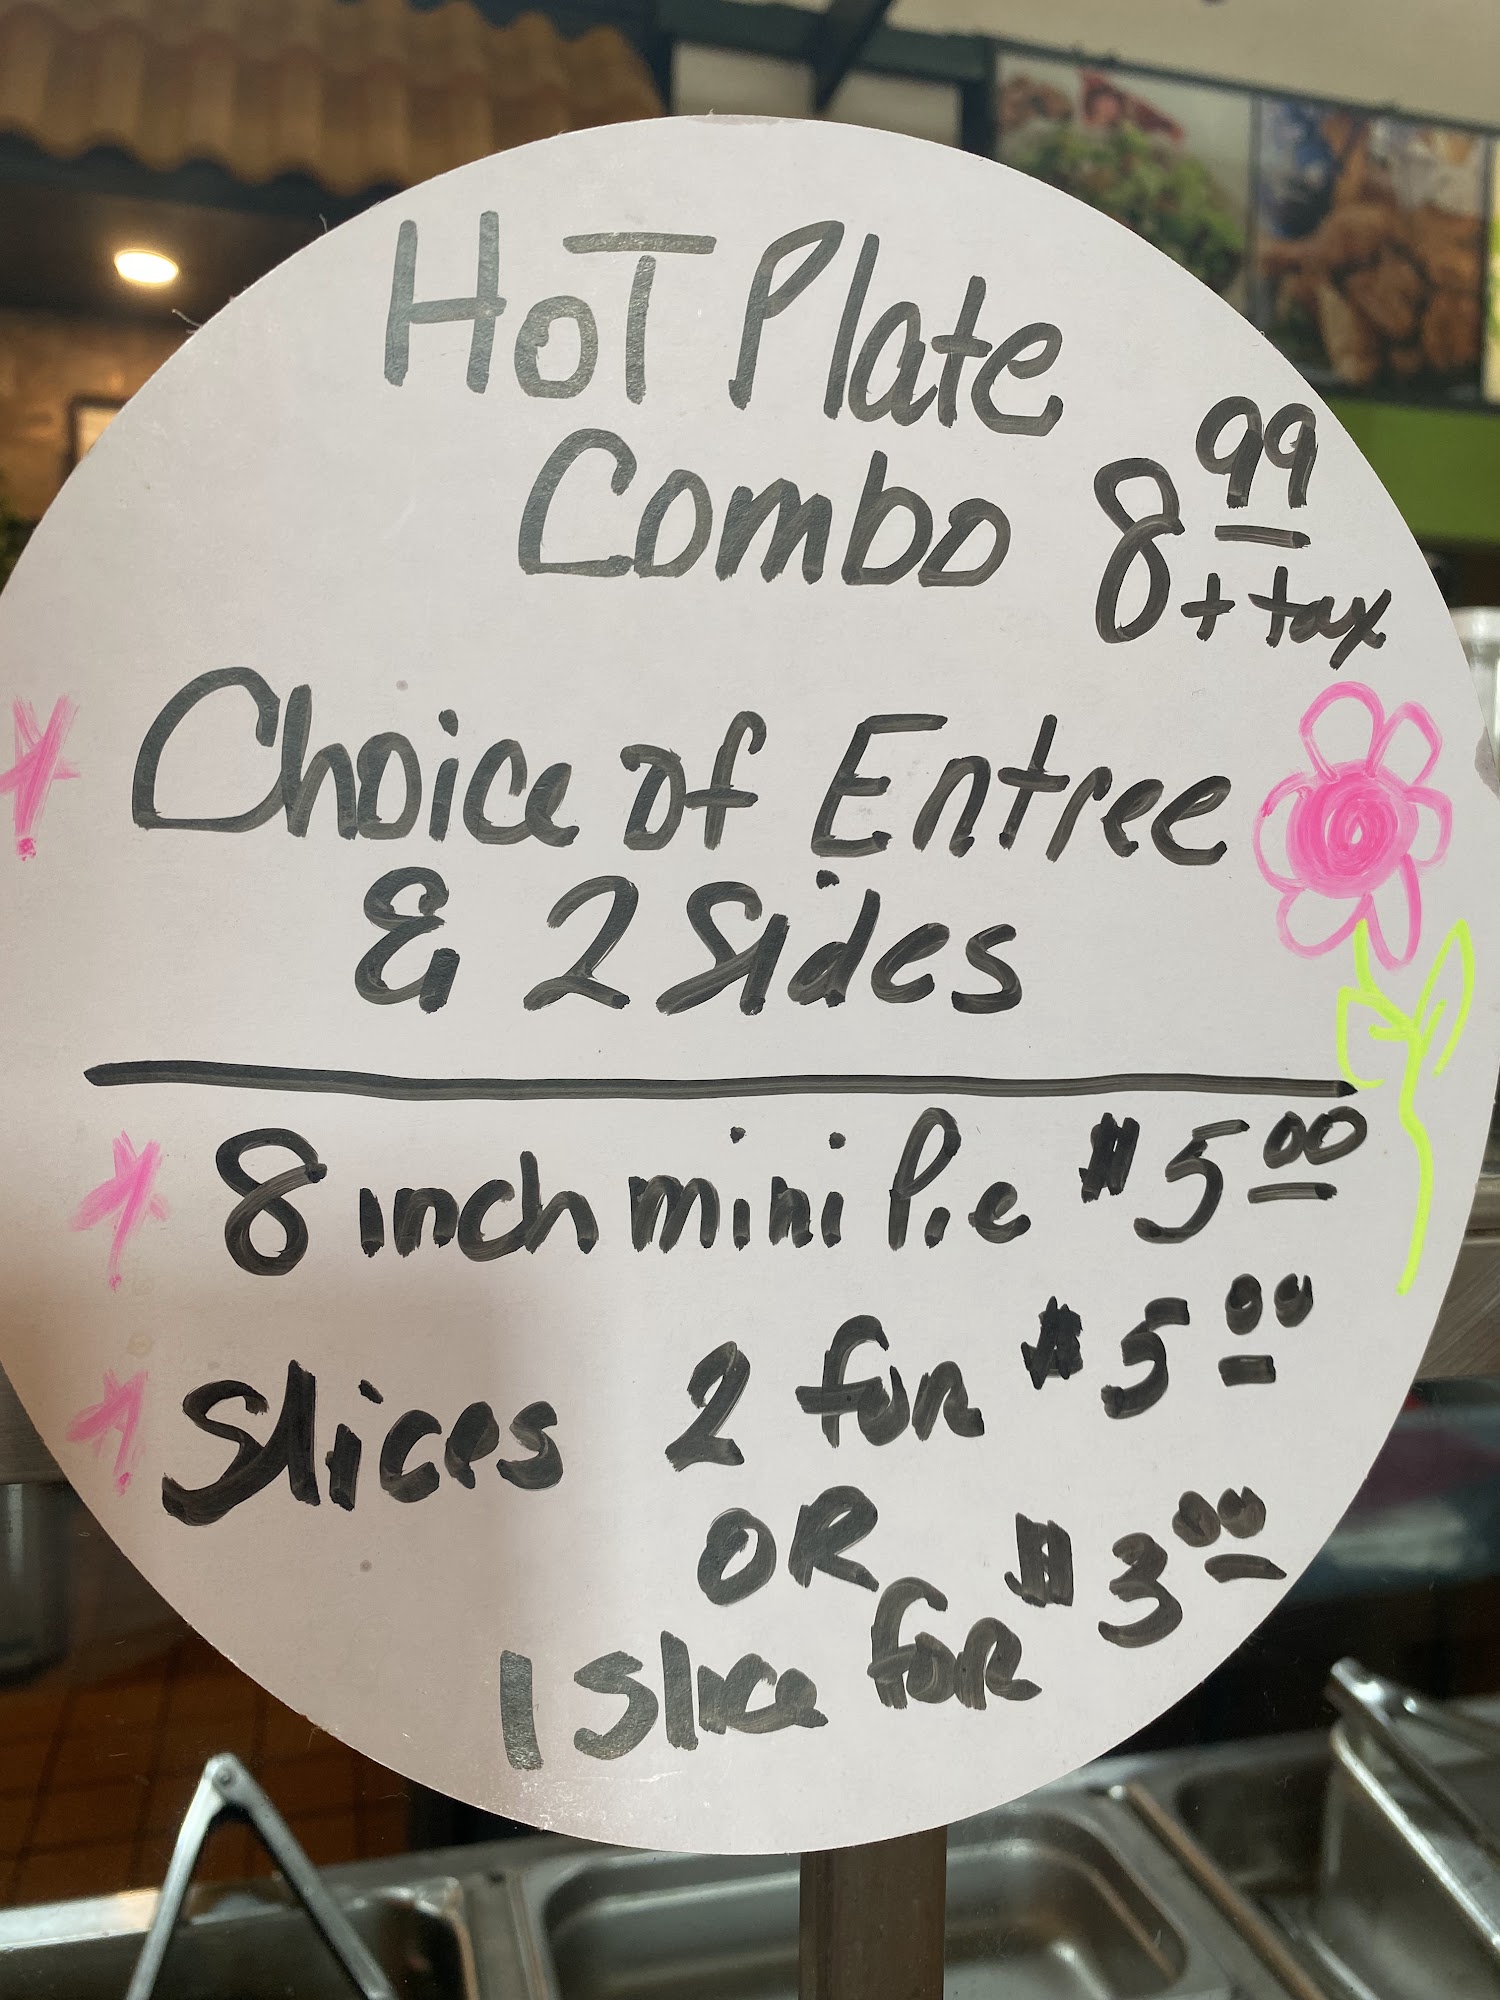 HoT Plate
Combo 8 99 + tax
Choice of Entree
& 2 Sides
8 inch mini Pie $5 00
Slices 2 for $5 00
OR
1 Slice foR $3 00